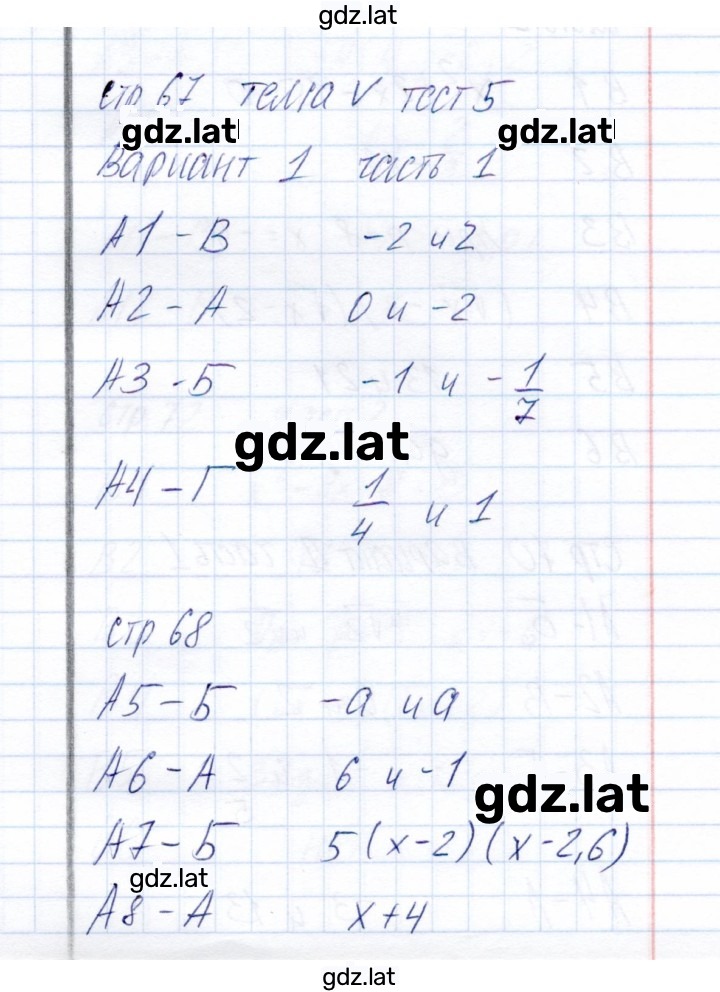 gdz.lat
стр 67 тема V тест 5
gdz.lat gdz.lat
Вариант 1 часть 1
А1 - В -2 и 2
А2 - А 0 и -2
А3 - Б -1 и -1/7
gdz.lat
А4 - Г 1/4 и 1
стр 68
А5 - Б -а и а
А6 - А 6 и -1
gdz.lat
А7 - Б 5(х-2)(х-2,6)
gdz.lat
А8 - А х+4
gdz.lat